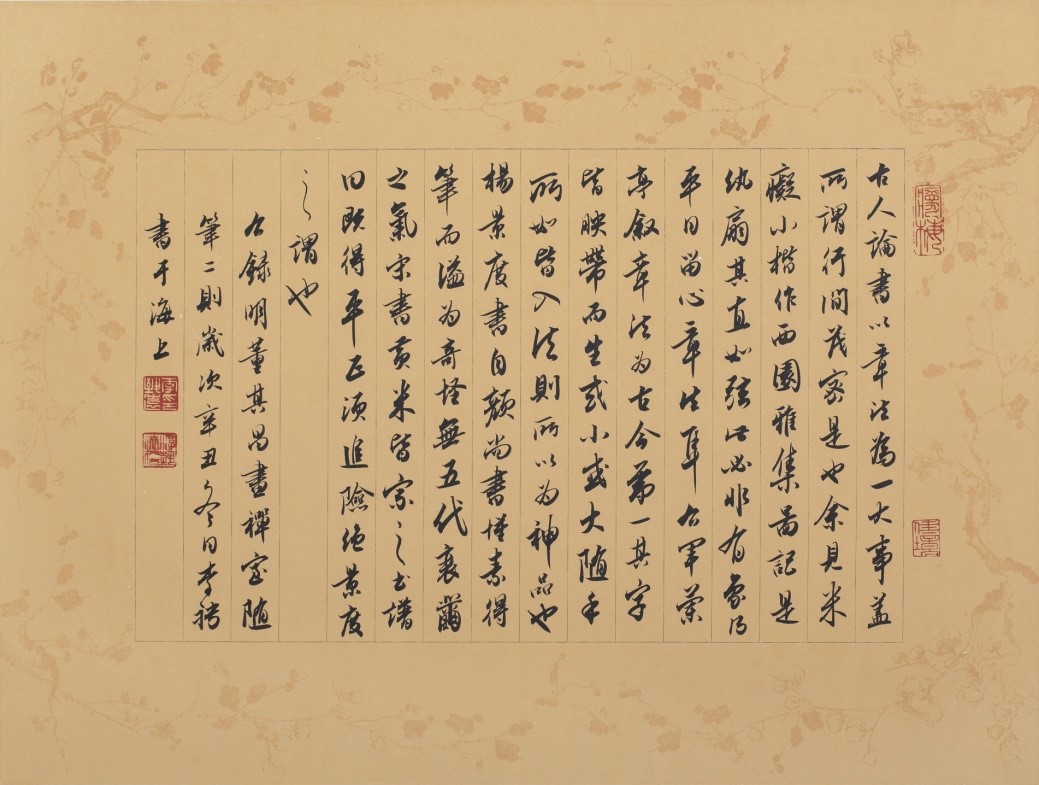 古人論書以章法為一大事盖
所謂行間茂密是也余見米
癡小楷作西園雅集圖記是
紈扇其直如弦此必非有象乃
平日留心章法耳右軍蘭
亭叙章法為古今第一其字
皆映帶而生或小或大随手
所如皆入法則所以为神品也
楊景度書自顔尚書懷素得
筆而溢为奇怪無五代衰薾
之氣宋書黄米皆宗之书譜
曰既得平正须追險绝景度
之謂也
右錄明董其昌畫禪室随
筆二則歲次辛丑冬日李
書于海上